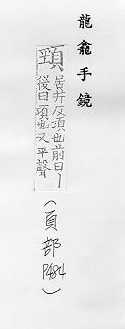 龍龕手鏡
頸
居井反頭也前曰丨
後曰項也又平聲
(頁部
P484)